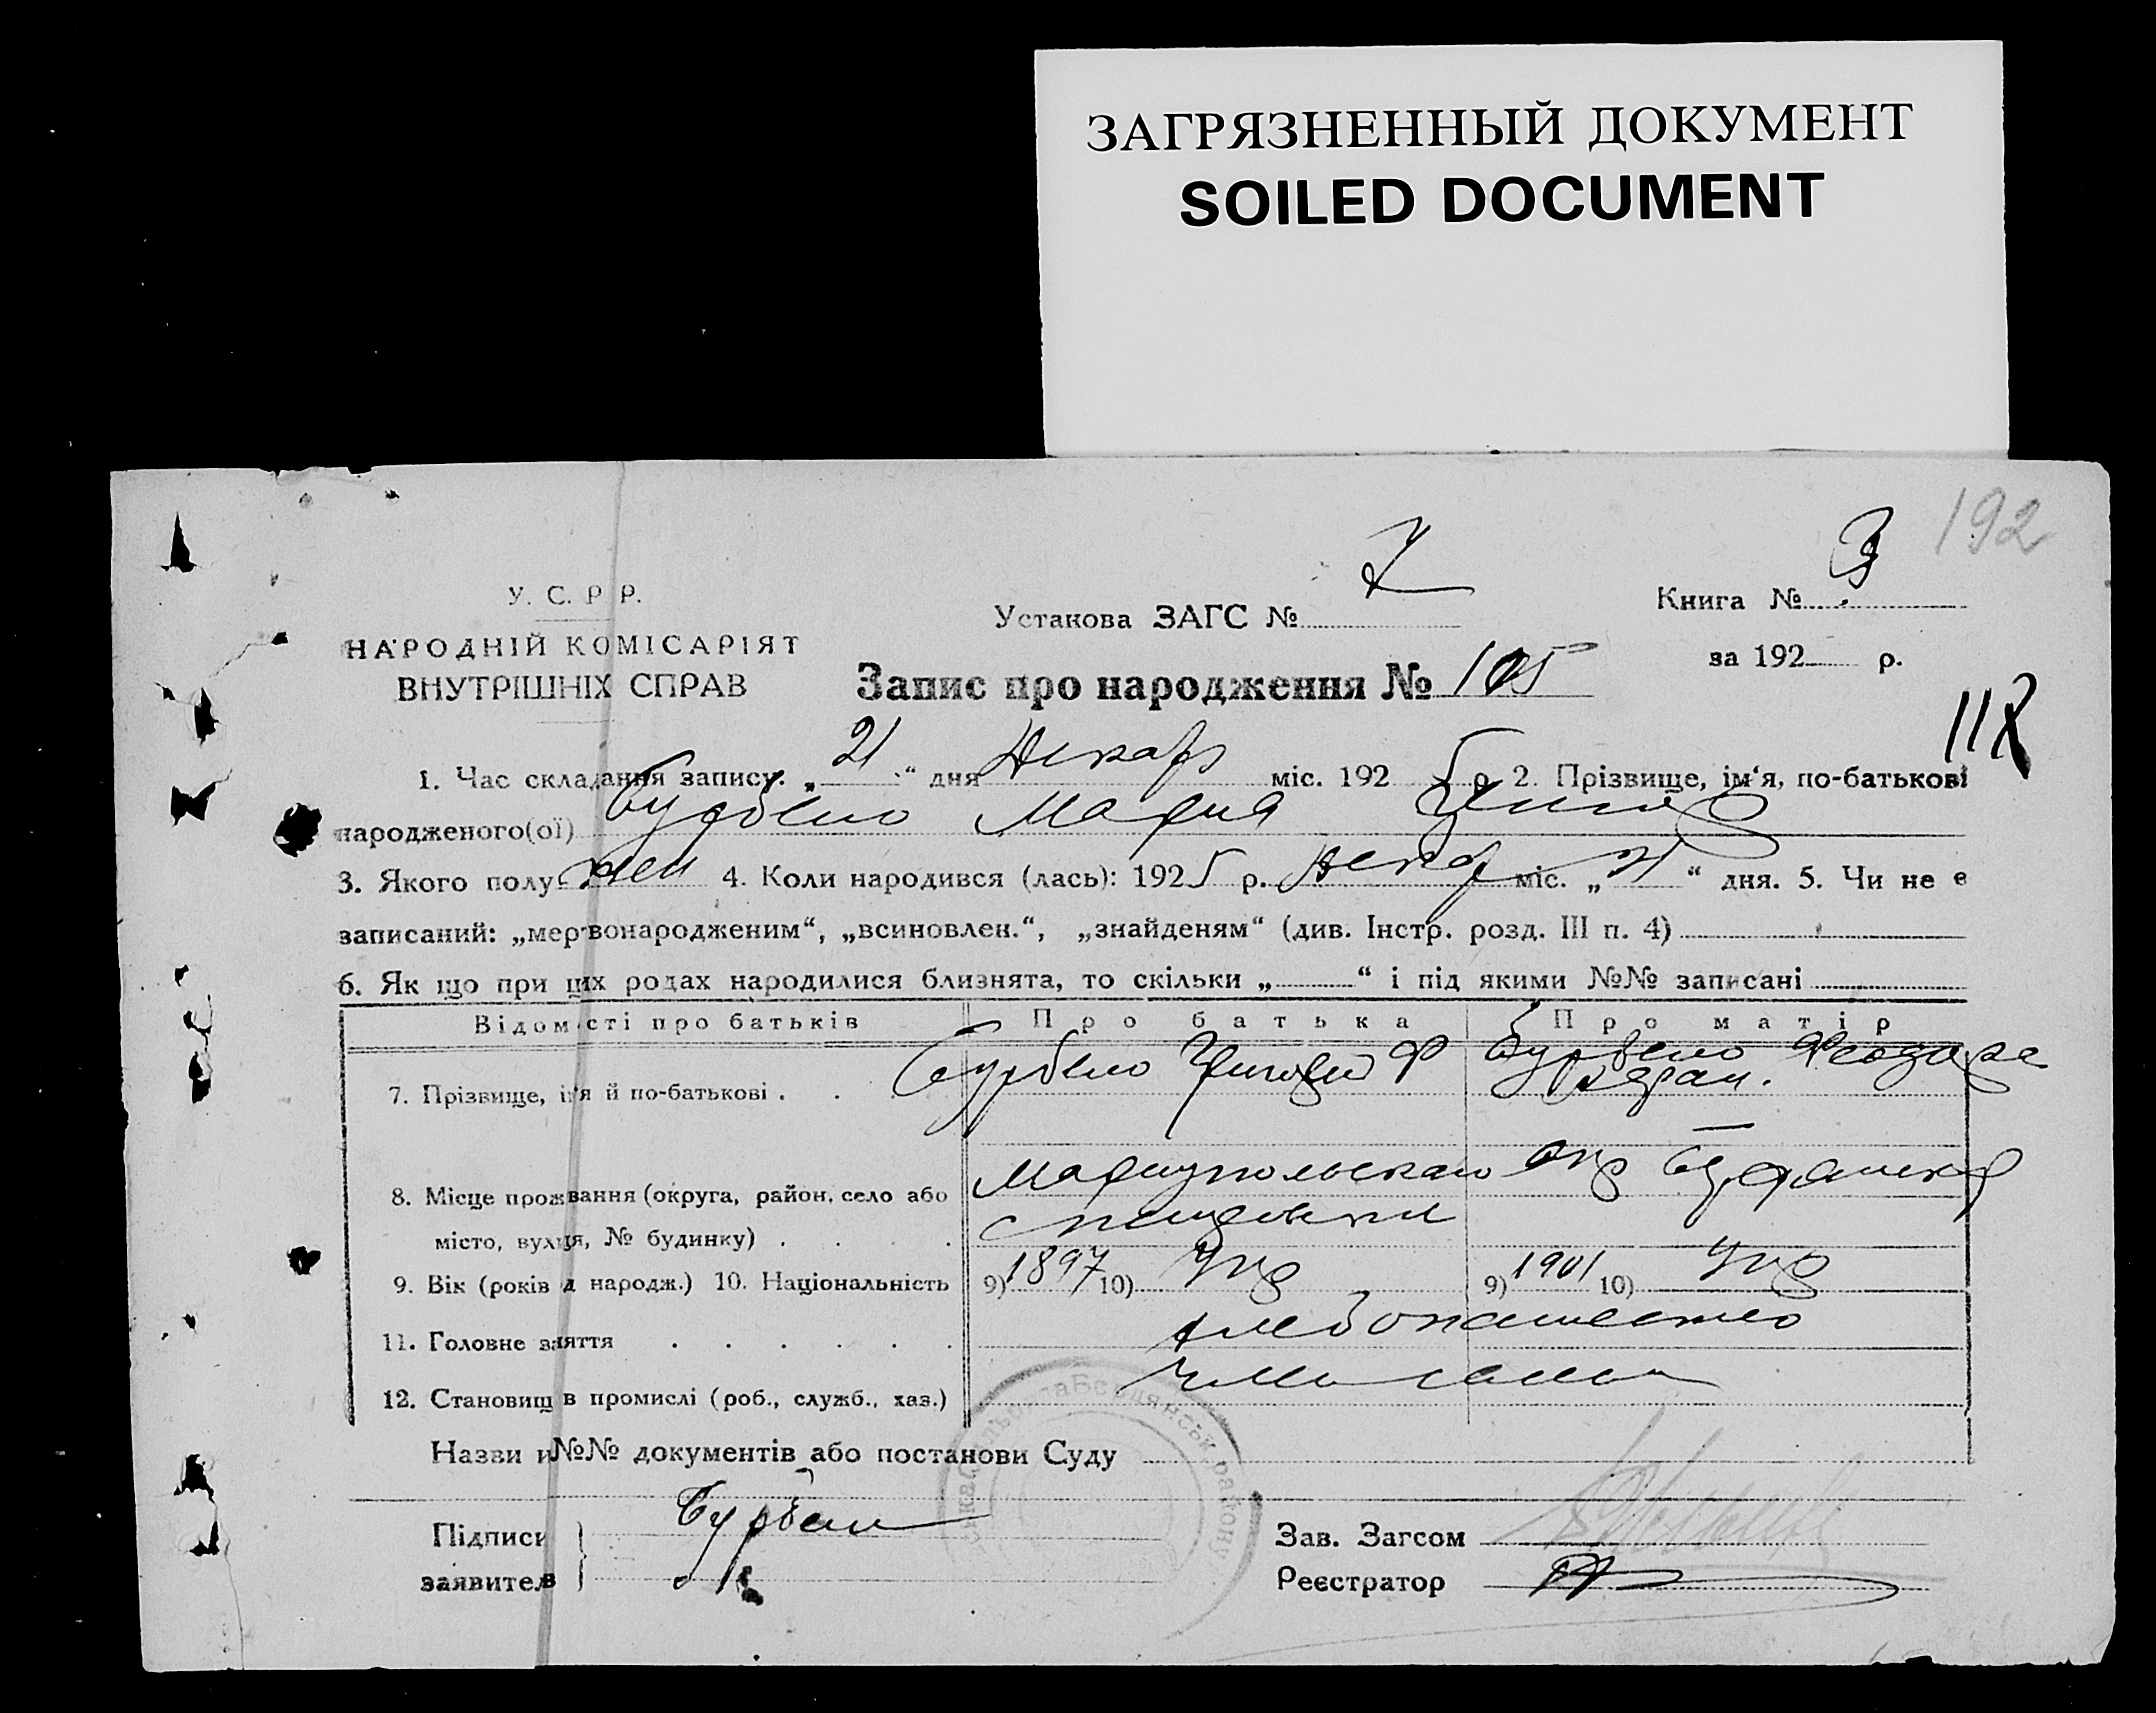 ЗАГРЯЗНЕННЫЙ ДОКУМЕНТ
SOILED DOCUMENT
192
У. С. Р. Р.
НАРОДНІЙ КОМІСАРІЯТ
ВНУТРІШНІХ СПРАВ
Установа ЗАГС №
Книга № 3
за 192 р.
Запис про народження № 105
118
1. Час складання запису: „ 21 “ дня Декабр міс. 192 5 р. 2. Прізвище, ім‘я, по-батькові
народженого(ої) Мария
3. Якого полу жен 4. Коли народився (лась): 1925 р. Декабр міс. „ “ дня. 5. Чи не є
записаний: „мертвонародженим“, „всиновлен.“, „знайденям“ (див. Інстр. розд. III п. 4)
6. Як що при цих родах народилися близнята, то скільки „ “ і під якими №№ записані
Відомості про батьків Про батька Про матір
7. Прізвище, ім‘я й по-батькові . Григорий Ф
8. Місце проживання (округа, район, село або Мариупольского окр
місто, вулиця, № будинку) .
9. Вік (років д народж.) 10. Національність 9) 1897 10) Укр 9) 1901 10) Укр
11. Головне заяття хлебопашество
12. Становищ в промислі (роб., служб., хаз.)
Назви и №№ документів або постанови Суду
Підписи
заявителв
Зав. Загсом
Реєстратор
Бердянськ району